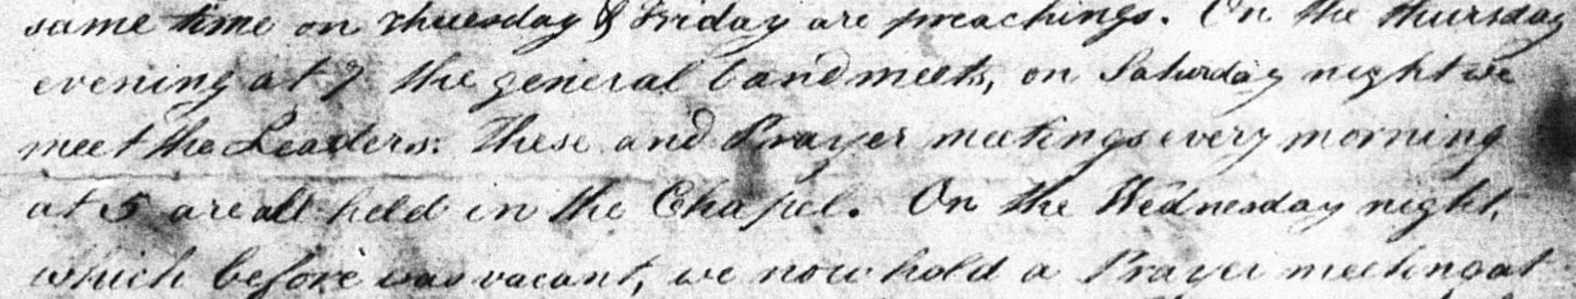 same time on thuesday & Friday are preachings. On the thursday
evening at 7 the general band meets, on Saturday night we
meet the Leaders. These and Prayer meetings every morning
at 5 are all held in the Chapel. On the Wednesday night,
which before was vacant, we now hold a Prayer meeting at